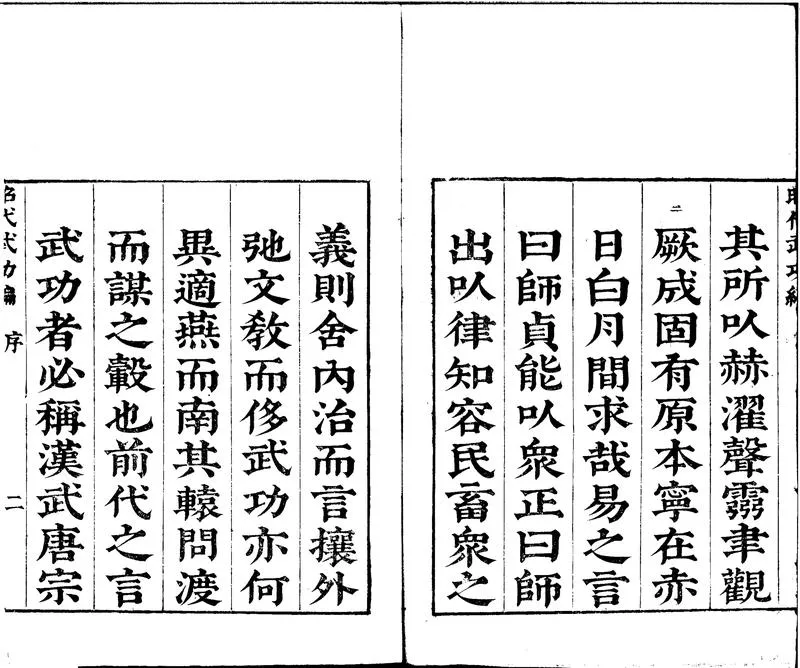 昭代武功編
其所㕥赫濯聲霛聿觀
厥成固有原本寧在赤
日白月間求哉易之言
曰師貞能㕥衆正曰師
出㕥律知容民畜衆之
義則舍內治而言攘外
弛文敎而侈武功亦何
異適燕而南其轅問渡
而謀之轂也前代之言
武功者必稱漢武唐宗
昭代武功編 序 二